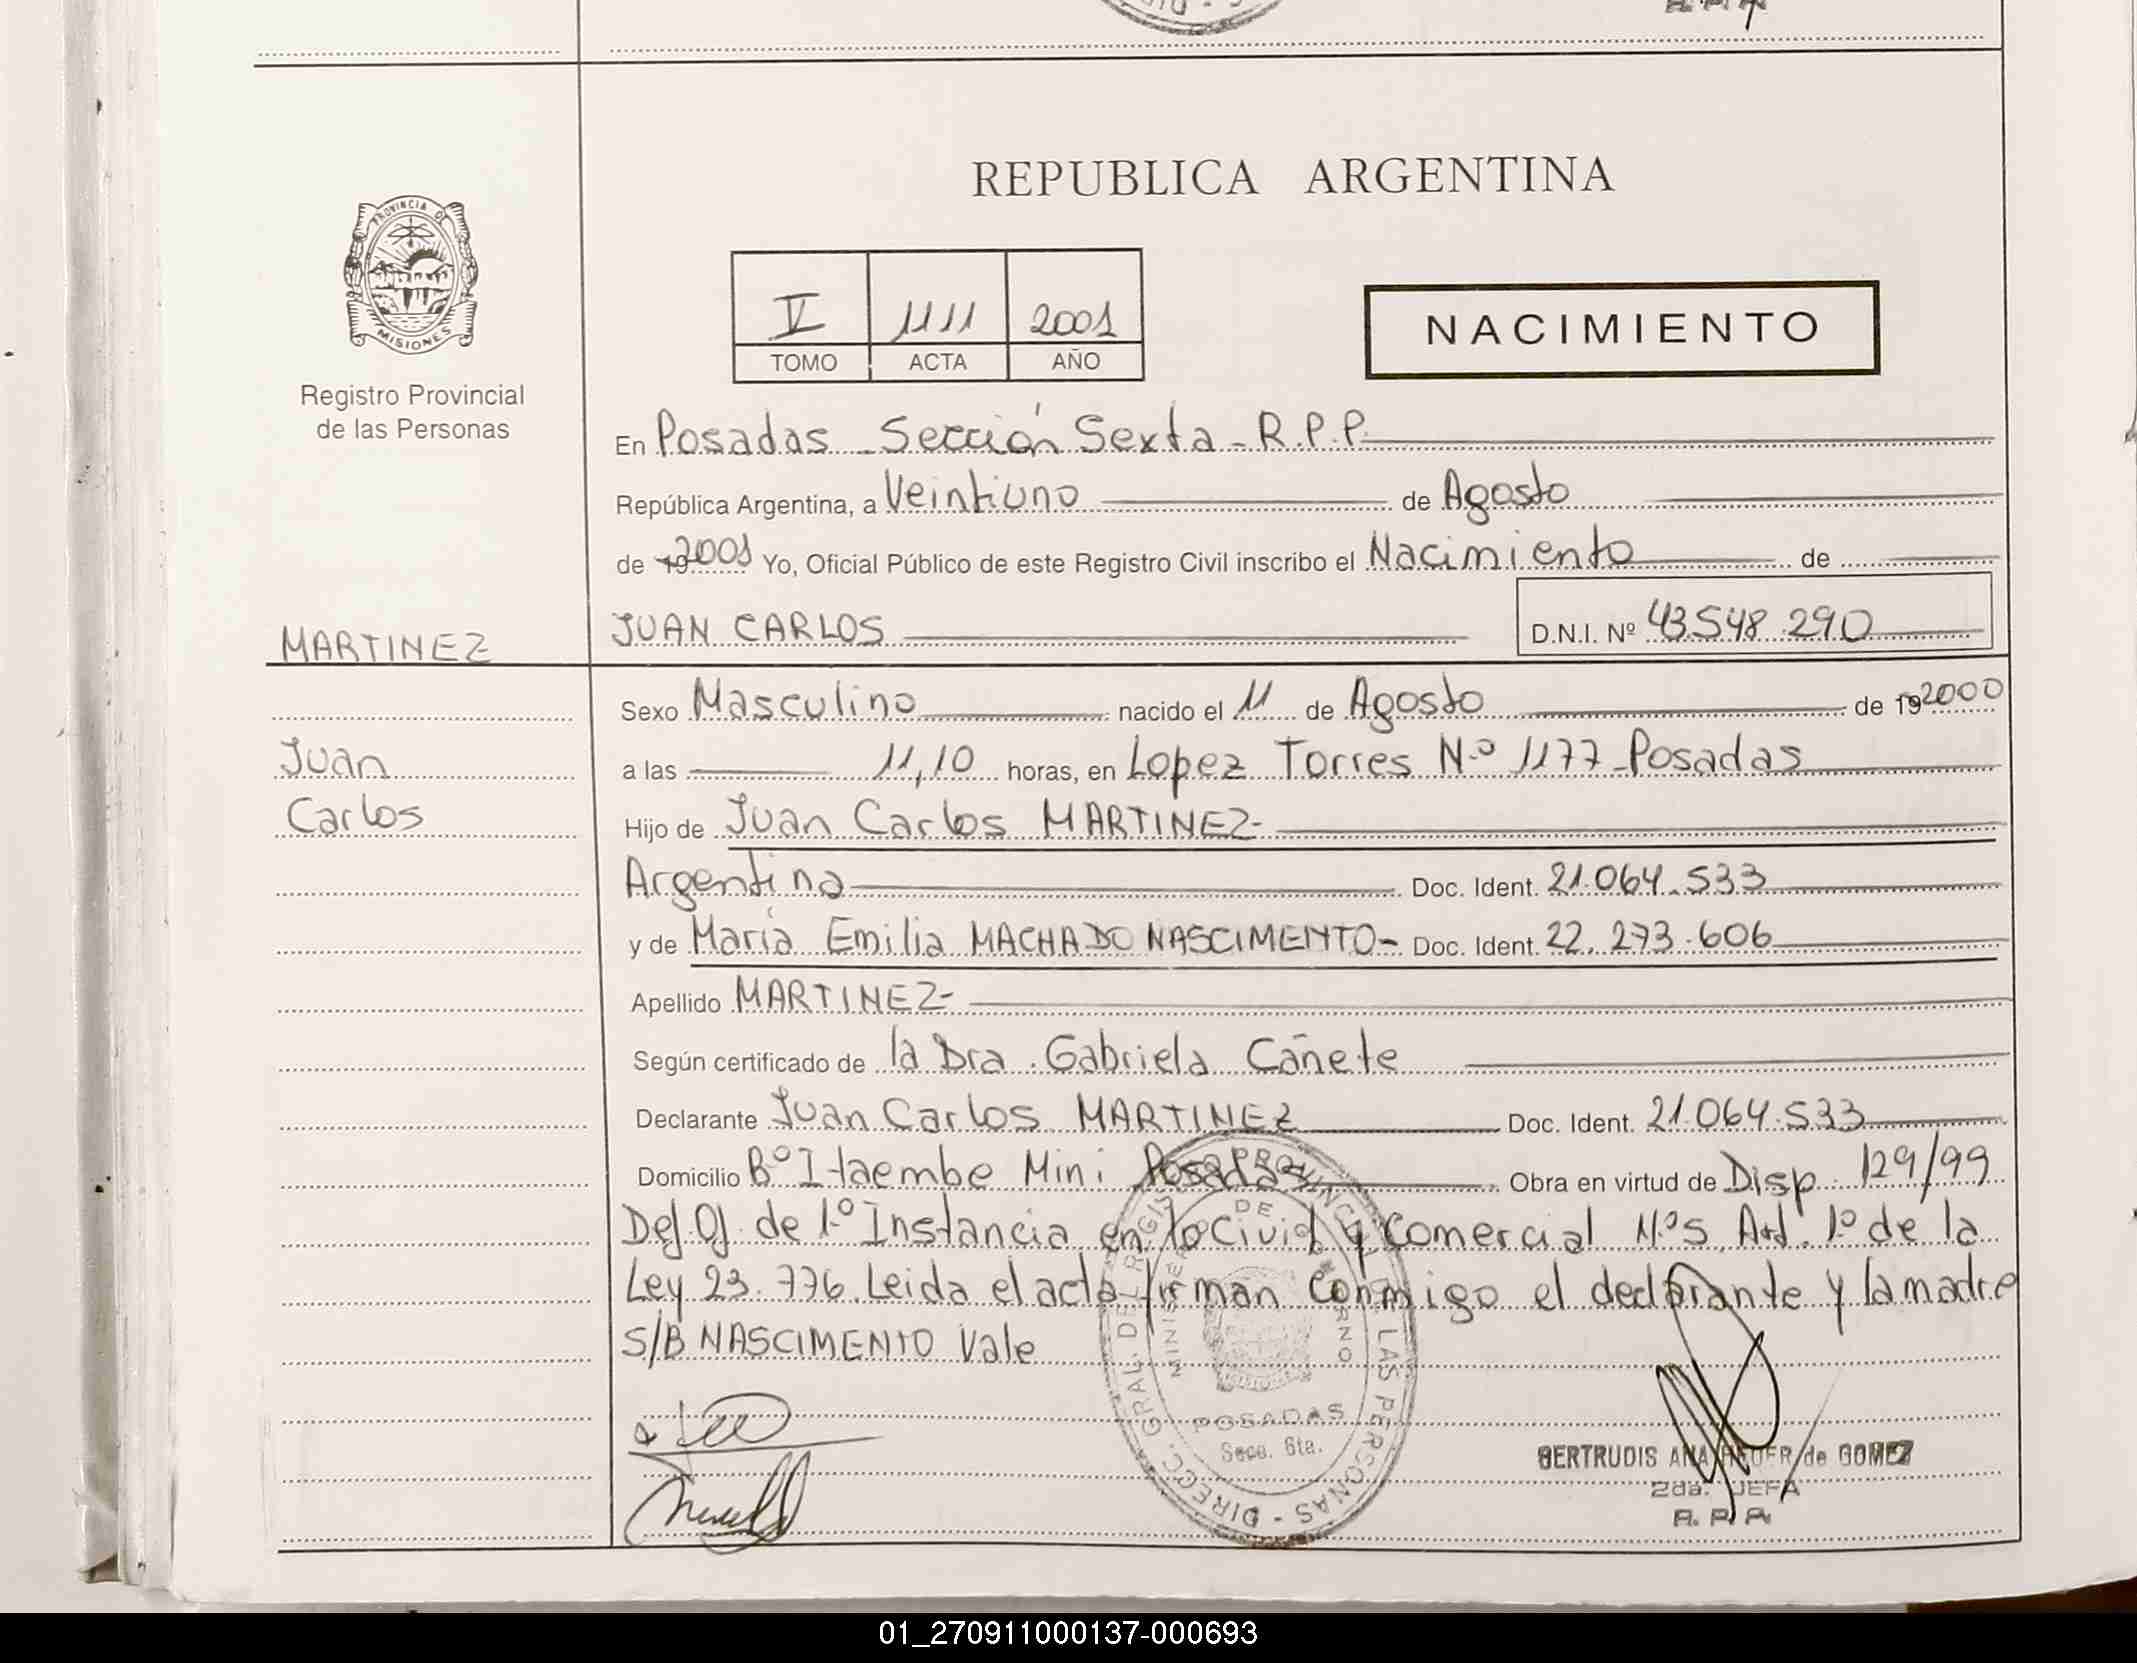 R. P. A.
REPUBLICA ARGENTINA
PROVINCIA DE
MISIONES
Registro Provincial
de las Personas
V 1111 2001
TOMO ACTA AÑO
NACIMIENTO
En Posadas - Sección Sexta - R.P.P.
República Argentina, a Veintiuno de Agosto
de 19 2001 Yo, Oficial Público de este Registro Civil inscribo el Nacimiento de
MARTINEZ JUAN CARLOS D.N.I. Nº 43.548.290
Sexo Masculino nacido el 11 de Agosto de 19 2000
Juan a las 11,10 horas, en Lopez Torres Nº 1177 - Posadas
Carlos Hijo de Juan Carlos MARTINEZ-
Argentina Doc. Ident. 21.064.533
y de María Emilia MACHADO NASCIMENTO- Doc. Ident. 22.273.606
Apellido MARTINEZ-
Según certificado de la Dra. Gabriela Cañete
Declarante Juan Carlos MARTINEZ Doc. Ident. 21.064.533
Domicilio Bº Itaembe Mini Posadas Obra en virtud de Disp. 129/99
Def. Of. de 1º Instancia en lo Civil y Comercial Nº5 Art. 1º de la
Ley 23.776. Leida el acta firman conmigo el declarante y la madre
S/B NASCIMENTO Vale
DIRECC. GRAL. DEL REGISTRO PROVINCIAL DE LAS PERSONAS
MINISTERIO DE GOBIERNO
POSADAS
Secc. 6ta.
GERTRUDIS ANA de GOMEZ
2da. JEFA
R. P. A.
01_270911000137-000693